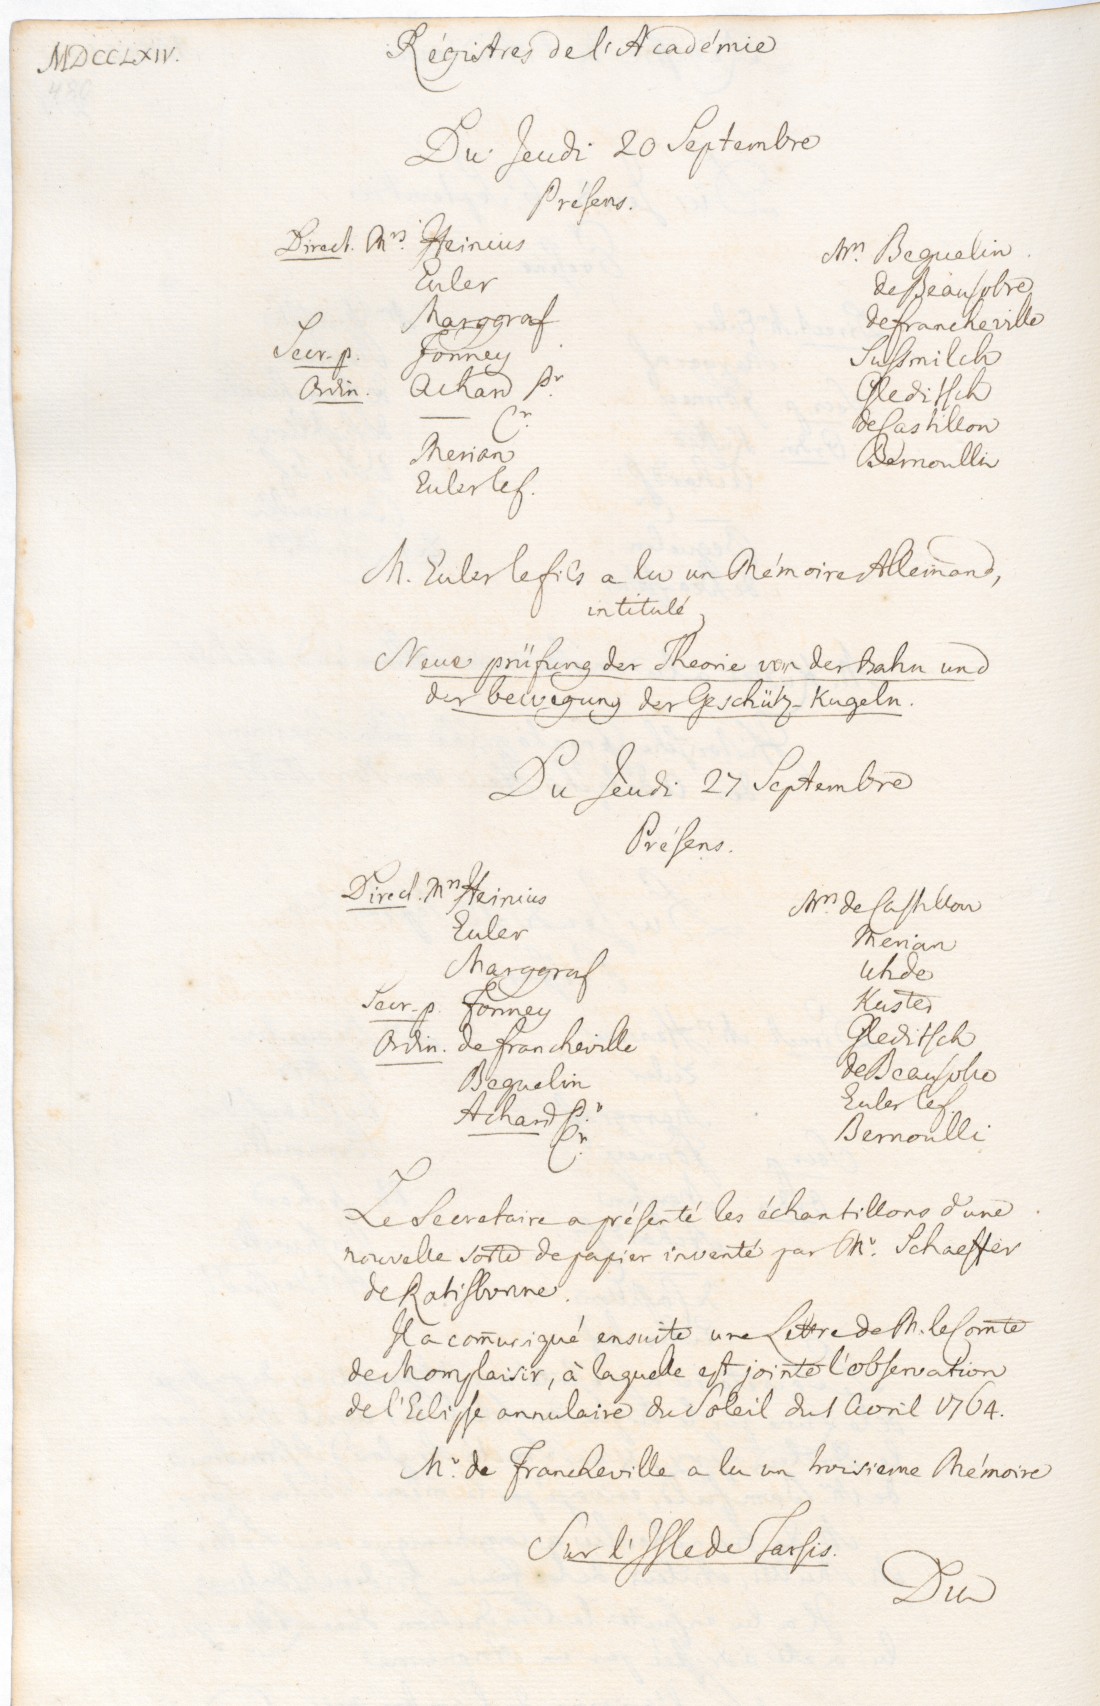 MDCCLXIV.
Régistres de l'Académie
Du Jeudi 20 Septembre
Présens.
Direct. Mrs. Heinius
Euler
Marggraf
Secr. p. Formey
Ordin. Achard Pr.
— Cr.
Merian
Euler le f.
Mrs. Beguelin
de Beausobre
de francheville
Sussmilch
Gleditsch
de Castillon
Bernoulli
M. Euler le fils a lu un Mémoire Allemand,
intitulé,
Neue prüfung der Theorie von der bahn und
der bewegung der Geschütz-Kugeln.
Du Jeudi 27 Septembre
Présens.
Direct. Mrs Heinius
Euler
Marggraf
Secr. p. Formey
Ordin. de francheville
Beguelin
Achard Pr.
Cr.
Mrs. de Castillon
Merian
Uhde
Kuster
Gleditsch
de Beausobre
Euler le f.
Bernoulli
Le Secretaire a présenté les échantillons d'une
nouvelle sorte de papier inventé par Mr. Schaeffer
de Ratisbonne.
Il a com̄uniqué ensuite une Lettre de M. le Comte
de Momplaisir, à laquelle est jointe l'observation
de l'Eclipse annulaire du Soleil du 1 Avril 1764.
Mr. de Francheville a lu un troisieme Mémoire
Sur l'Isle de Tarsis.
Du